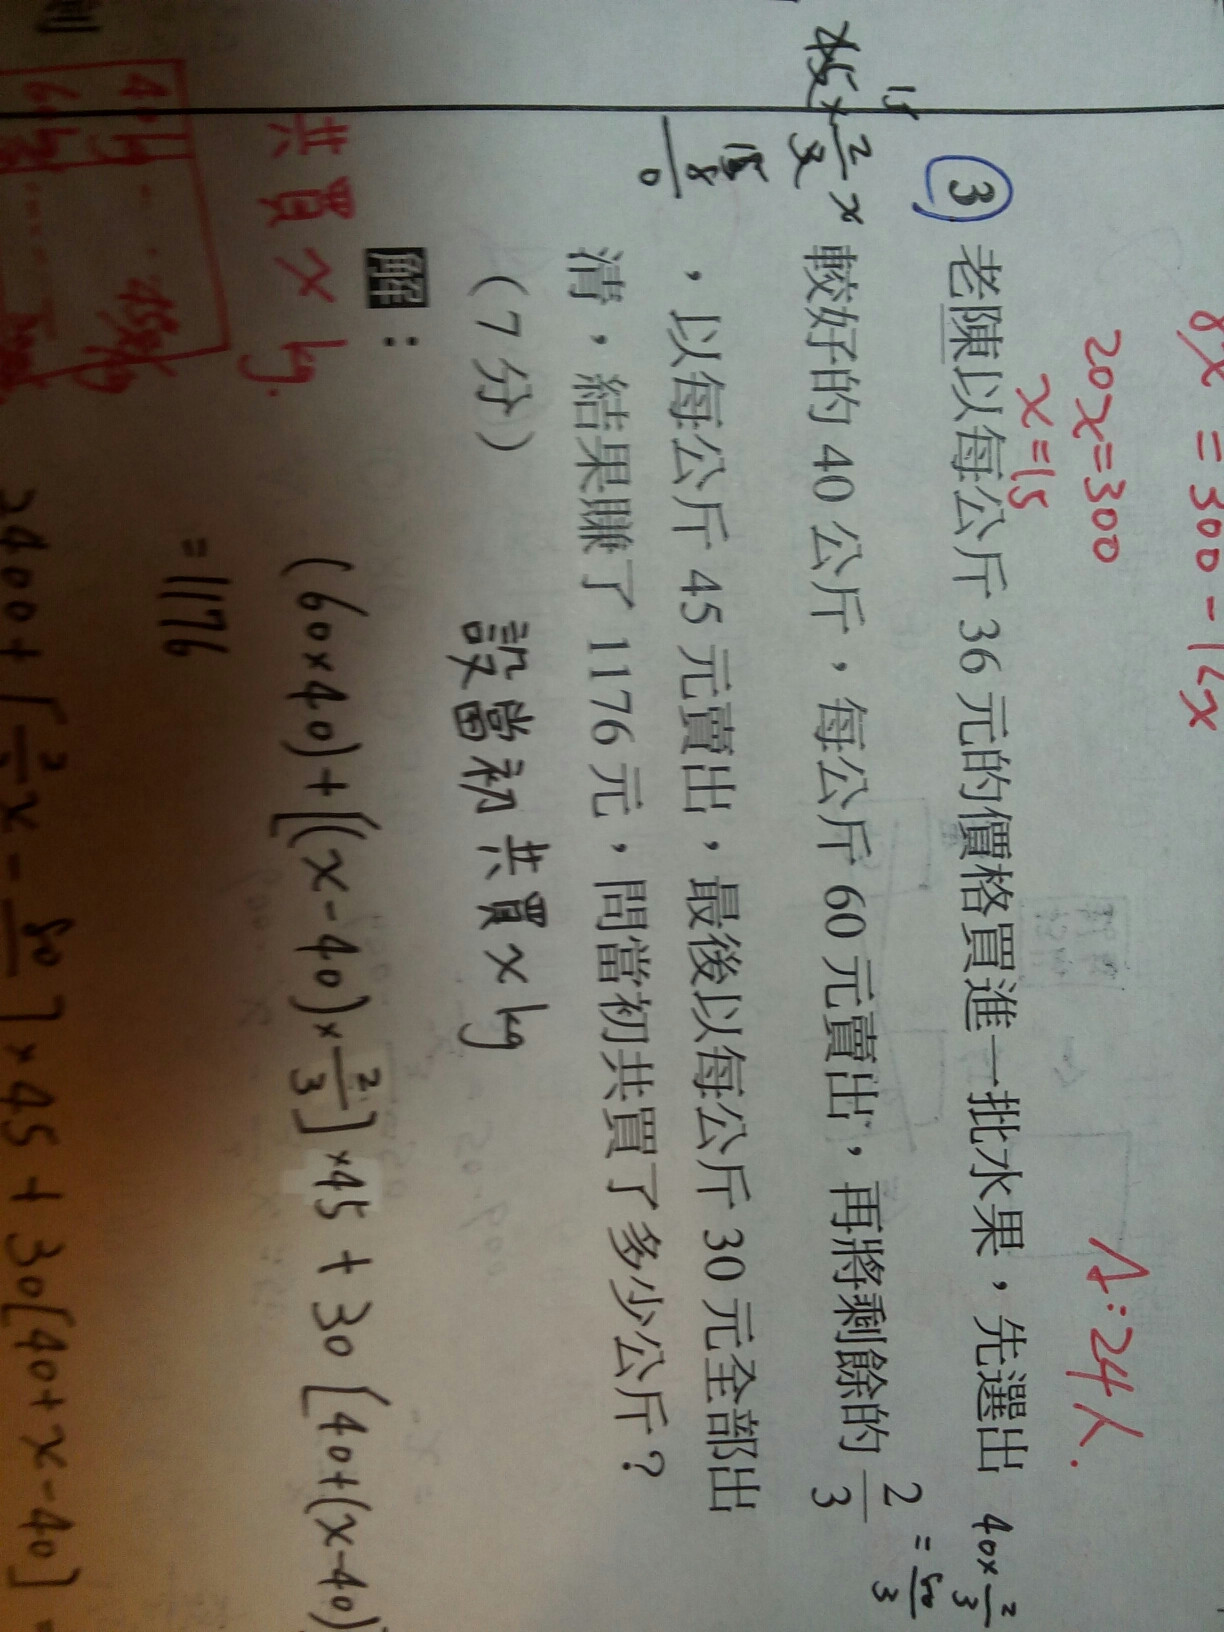 8x = 300 - 12x
20x = 300
x = 15
A: 24人.
③ 老陳以每公斤 36 元的價格買進一批水果，先選出
40×2/3
較好的 40 公斤，每公斤 60 元賣出，再將剩餘的 2/3
= 80/3
，以每公斤 45 元賣出，最後以每公斤 30 元全部出
清，結果賺了 1176 元，問當初共買了多少公斤？
（7 分）
解：
設當初共買 x kg
共買 x kg.
(60×40)+[(x-40)×2/3]×45 + 30[40+(x-40)
=1176
2400+[2/3x - 80/3]×45 + 30[40+x-40]